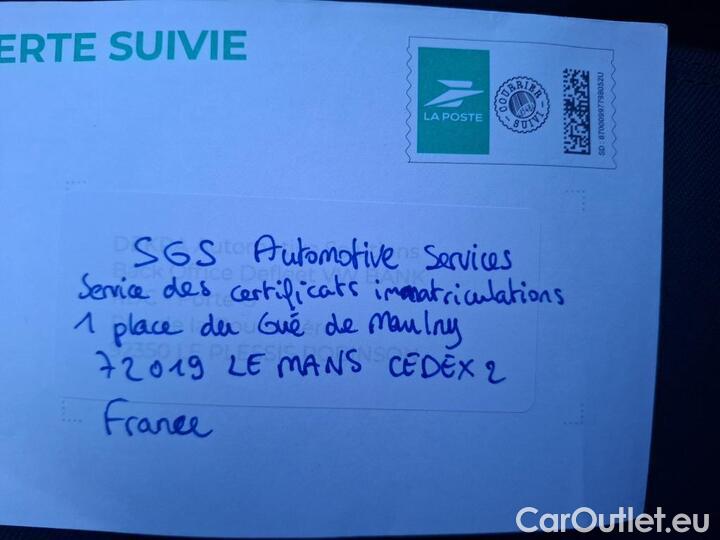 ERTE SUIVIE
LA POSTE
COURRIER
SUIVI
SGS Automotive Services
Service des certificats immatriculations
1 place du Gué de Maulny
72019 LE MANS CEDEX 2
France
CarOutlet.eu